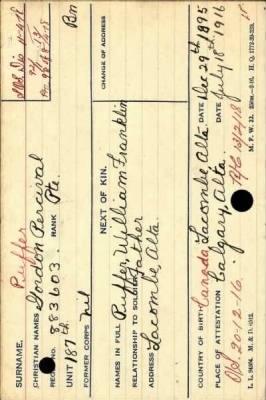 SURNAME, Puffer
CHRISTIAN NAMES Gordon Percival
REGTL. NO. 883603. RANK Pte.
UNIT 187th Bn
FORMER CORPS Nil
NEXT OF KIN.
NAMES IN FULL Puffer, William Franklin
RELATIONSHIP TO SOLDIER Father
ADDRESS Lacombe Alta.
CHANGE OF ADDRESS
COUNTRY OF BIRTH Canada Lacombe Alta. DATE Dec 29th 1895
PLACE OF ATTESTATION Calgary, Alta. DATE July 18th 1916
20-12-16.
13/2/18
L. L. 94694. M. & D.
M. F. W. 22.
H. Q. 1772-39-339.